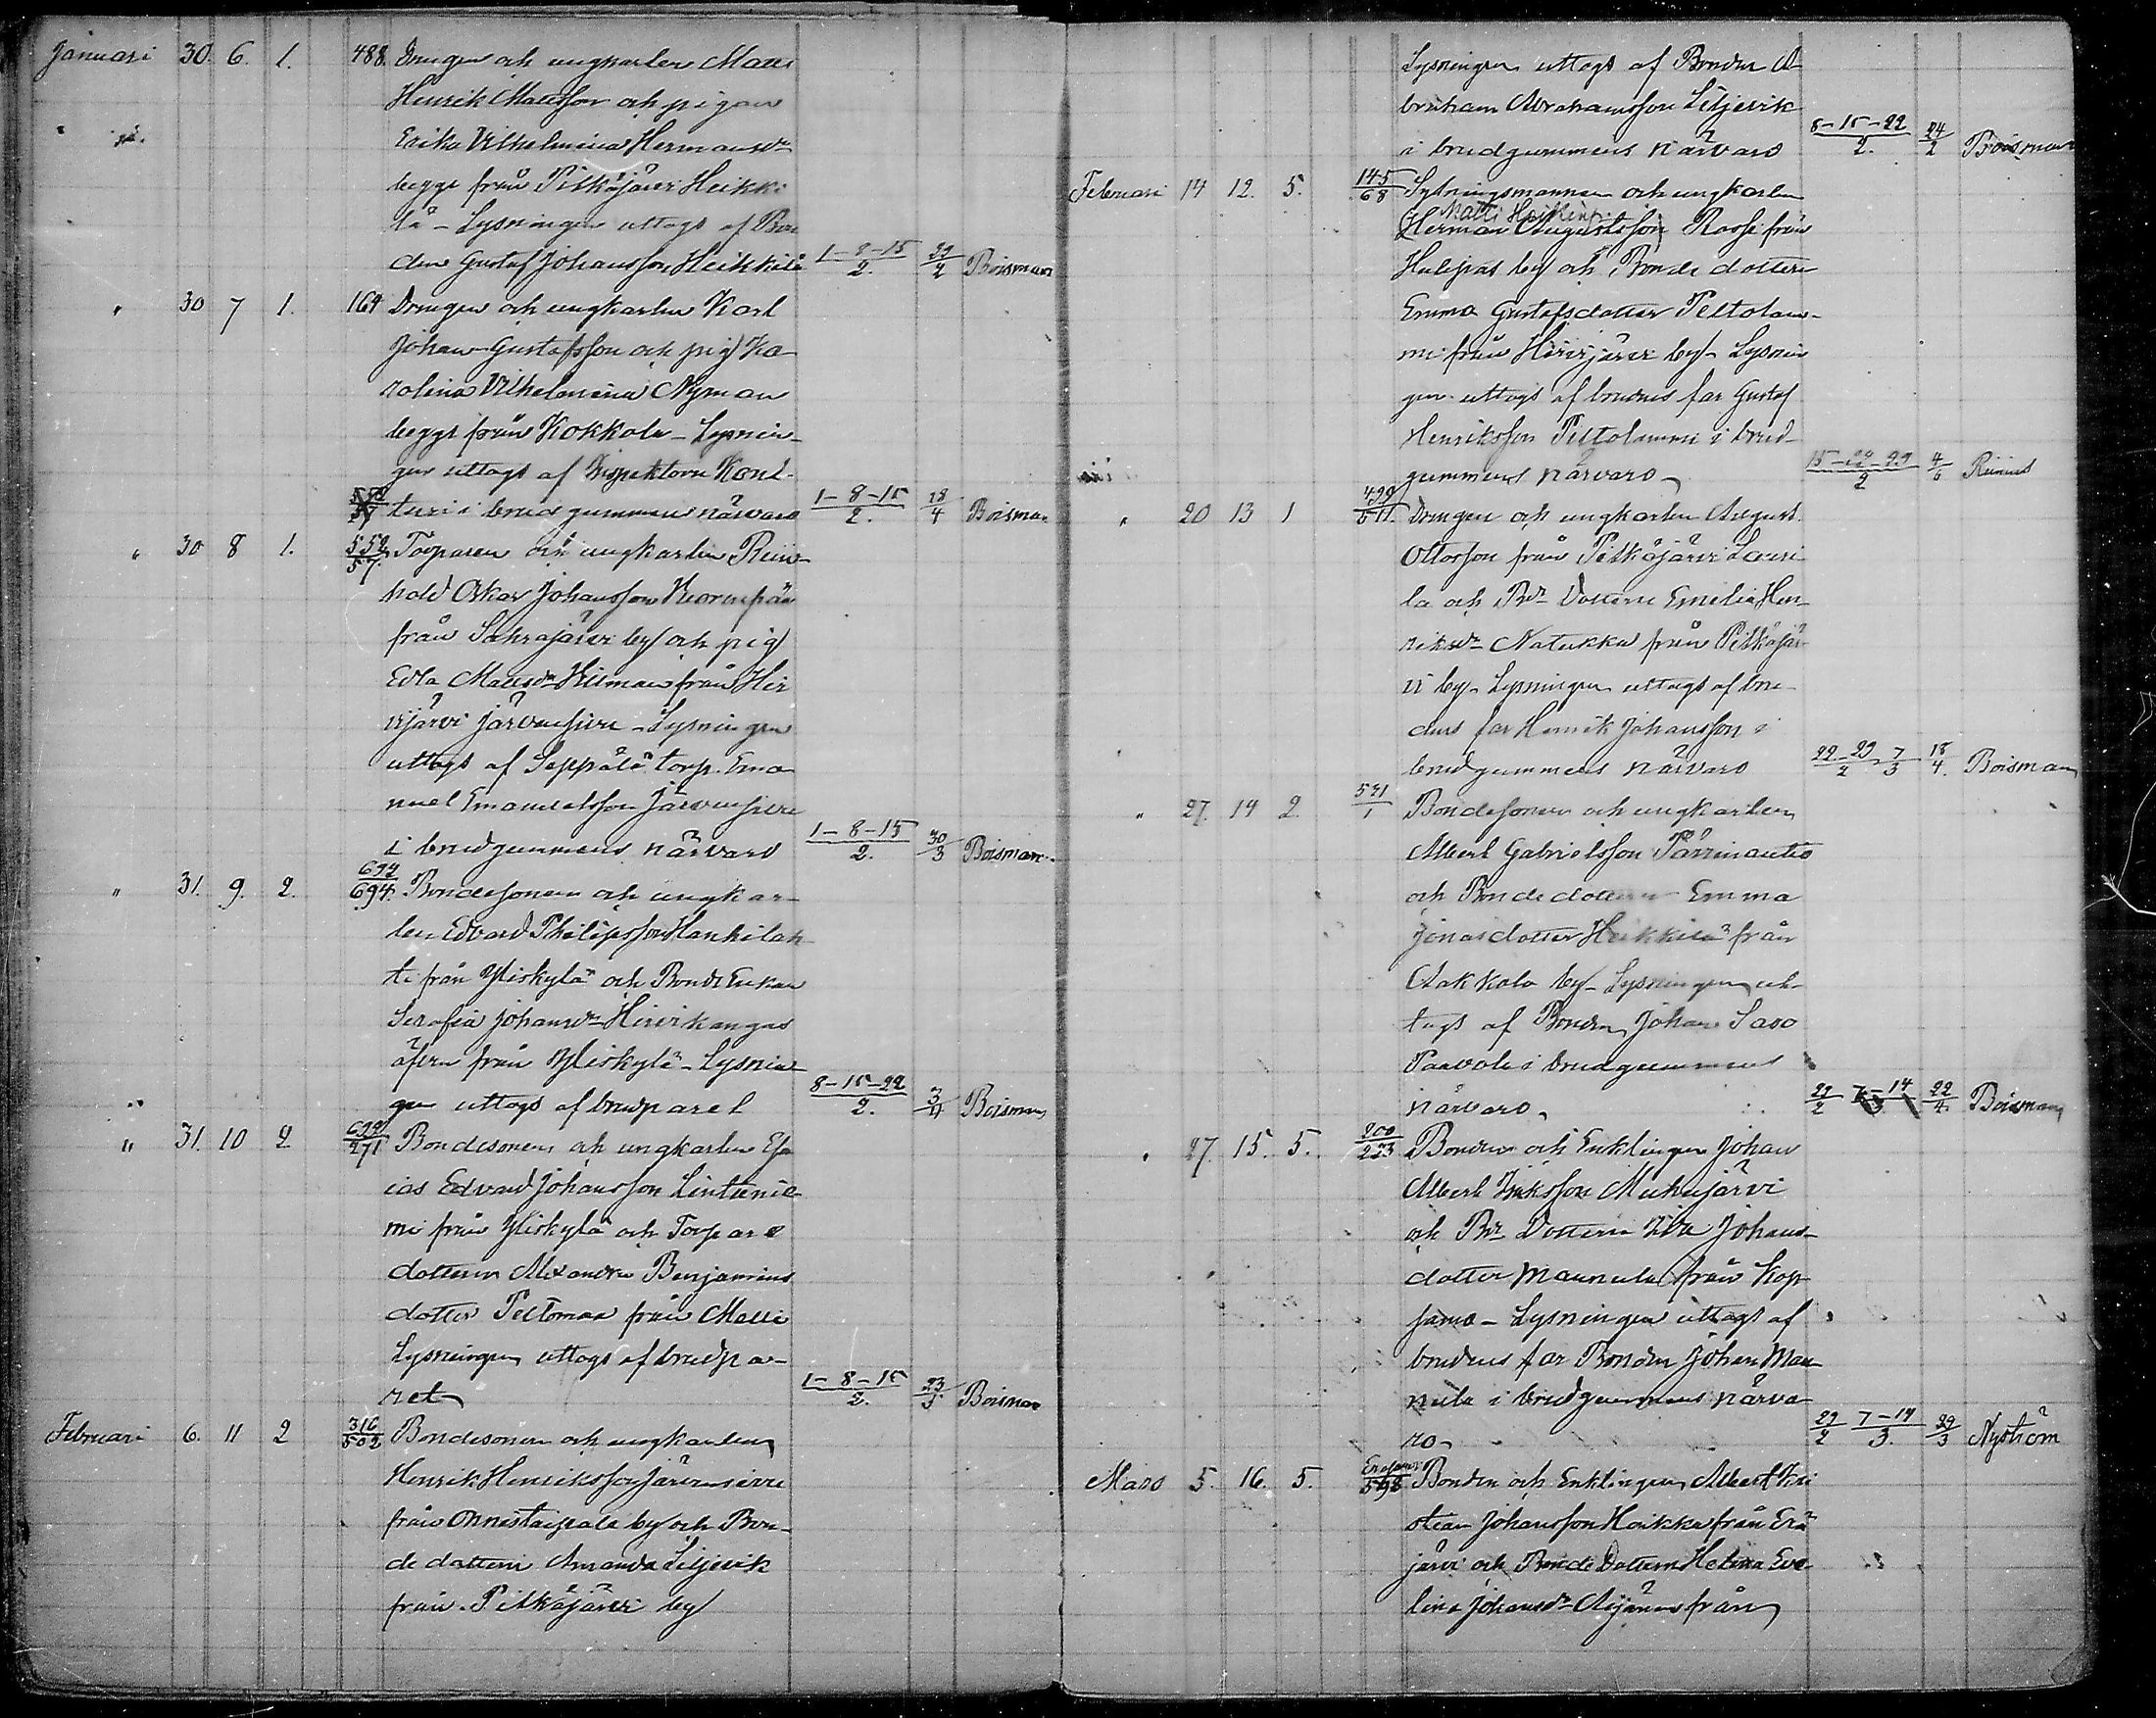 Januari 30. 6. 1. 488. Drengen och ungkarlen Matts
Henrik Mattsson och pigan
Erika Vilhelmina Hermansdr
begge från Pitkäjärvi Heikki
lä - Lysningen uttogs af Bon
den Gustaf Johansson Heikkilä 1-8-15/2. 29/2 Boisman
" 30 7 1. 164 Drengen och ungkarlen Karl
Johan Gustafsson och pig. Ka
rolina Vilhelmina Nyman
begge från Kokkola - Lysnin-
gen uttogs af Inspektorn
i brudgummens närvaro 1-8-15/2. 18/4 Boisman
" 30 8 1. 552/57. Torparen och ungkarlen Rein-
hold Oskar Johansson
från Sahrajärvi by och pig.
Edla Mattsdr Hilman från Hir
vijärvi Järvensivu - Lysningen
uttogs af Seppälä torp. Ema
nuel Emanuelsson Järvensivu
i brudgummens närvaro 1-8-15/2. 30/3 Boisman
" 31. 9. 2. 692/694. Bondesonen och ungkar-
len Edvard Philipsson Hankilah-
ti från Yliskylä och Bonde Enkan
Serafia Johansdr Hirvikangas
äfven från Yliskylä - Lysnin
gen uttogs af brudparet 8-15-22/2. 3/4 Boisman
" 31. 10 2 692/271 Bondesonen och ungkarlen Esa
ias Edvard Johansson Lintunie-
mi från Yliskylä och Torpare
dottern Alexandra Benjamins
dotter Peltomaa från
Lysningen uttogs af brudpa-
ret 1-8-15/2. 23/3 Boisman
Februari 6. 11 2 316/502 Bondesonen och ungkarlen
Henrik Henriksson Järvensivu
från Onnistaipale by och Bon-
de dottern Amanda Liljevik
från Pitkäjärvi by
Lysningen uttogs af Bonden A-
braham Abrahamsson Liljevik
i brudgummens närvaro 8-15-22/2. 24/2 Boisman
Februari 14 12. 5. 145/68 Sytningsmannen och ungkarlen
Matti Heikinp.
(Herman Augustsson) Rosse från
Huljas by och Bonde dottern
Emma Gustafsdotter Peltolam-
mi från Hirvijärvi by - Lysnin
gen uttogs af brudens far Gustaf
Henriksson Peltolammi i brud-
gummens närvaro 15-22-29/2 4/6
" 20 13 1 499/511. Drengen och ungkarlen August
Ottosson från Pitkäjärvi Lauri
la och Bde Dottern Emelia Hen
riksdr Natukka från Pitkäjär
vi by - Lysningen uttogs af bru-
dens far Henrik Johansson i
brudgummens närvaro 22-29/2 7/3 18/4. Boisman
" 27. 14 2. 531/1 Bondesonen och ungkarlen
Albert Gabrielsson Pärrinautio
och Bonde dottern Emma
Jonasdotter Heikkilä från
Aakkola by - Lysningen ut-
togs af Bonden Johan Saso
Paavola i brudgummens
närvaro. 29/2 7-14/3 22/4. Boisman
" 27. 15. 5. 200/223 Bonden och Enklingen Johan
Albert Isaksson Mukujärvi
och Bde Dottern Ida Johans-
dotter Mannula från Kop-
samo - Lysningen uttogs af
brudens far Bonden Johan Man
nula i brudgummens närva
ro - 29/2 7-14/3. 29/3 Nyström
Mars 5. 16. 5. 598 Bonden och Enklingen Albert Kri
stian Johansson Hoikka från Erä
järvi och Bonde Dottern Helena Eve
lina Johansdr Äijänen från